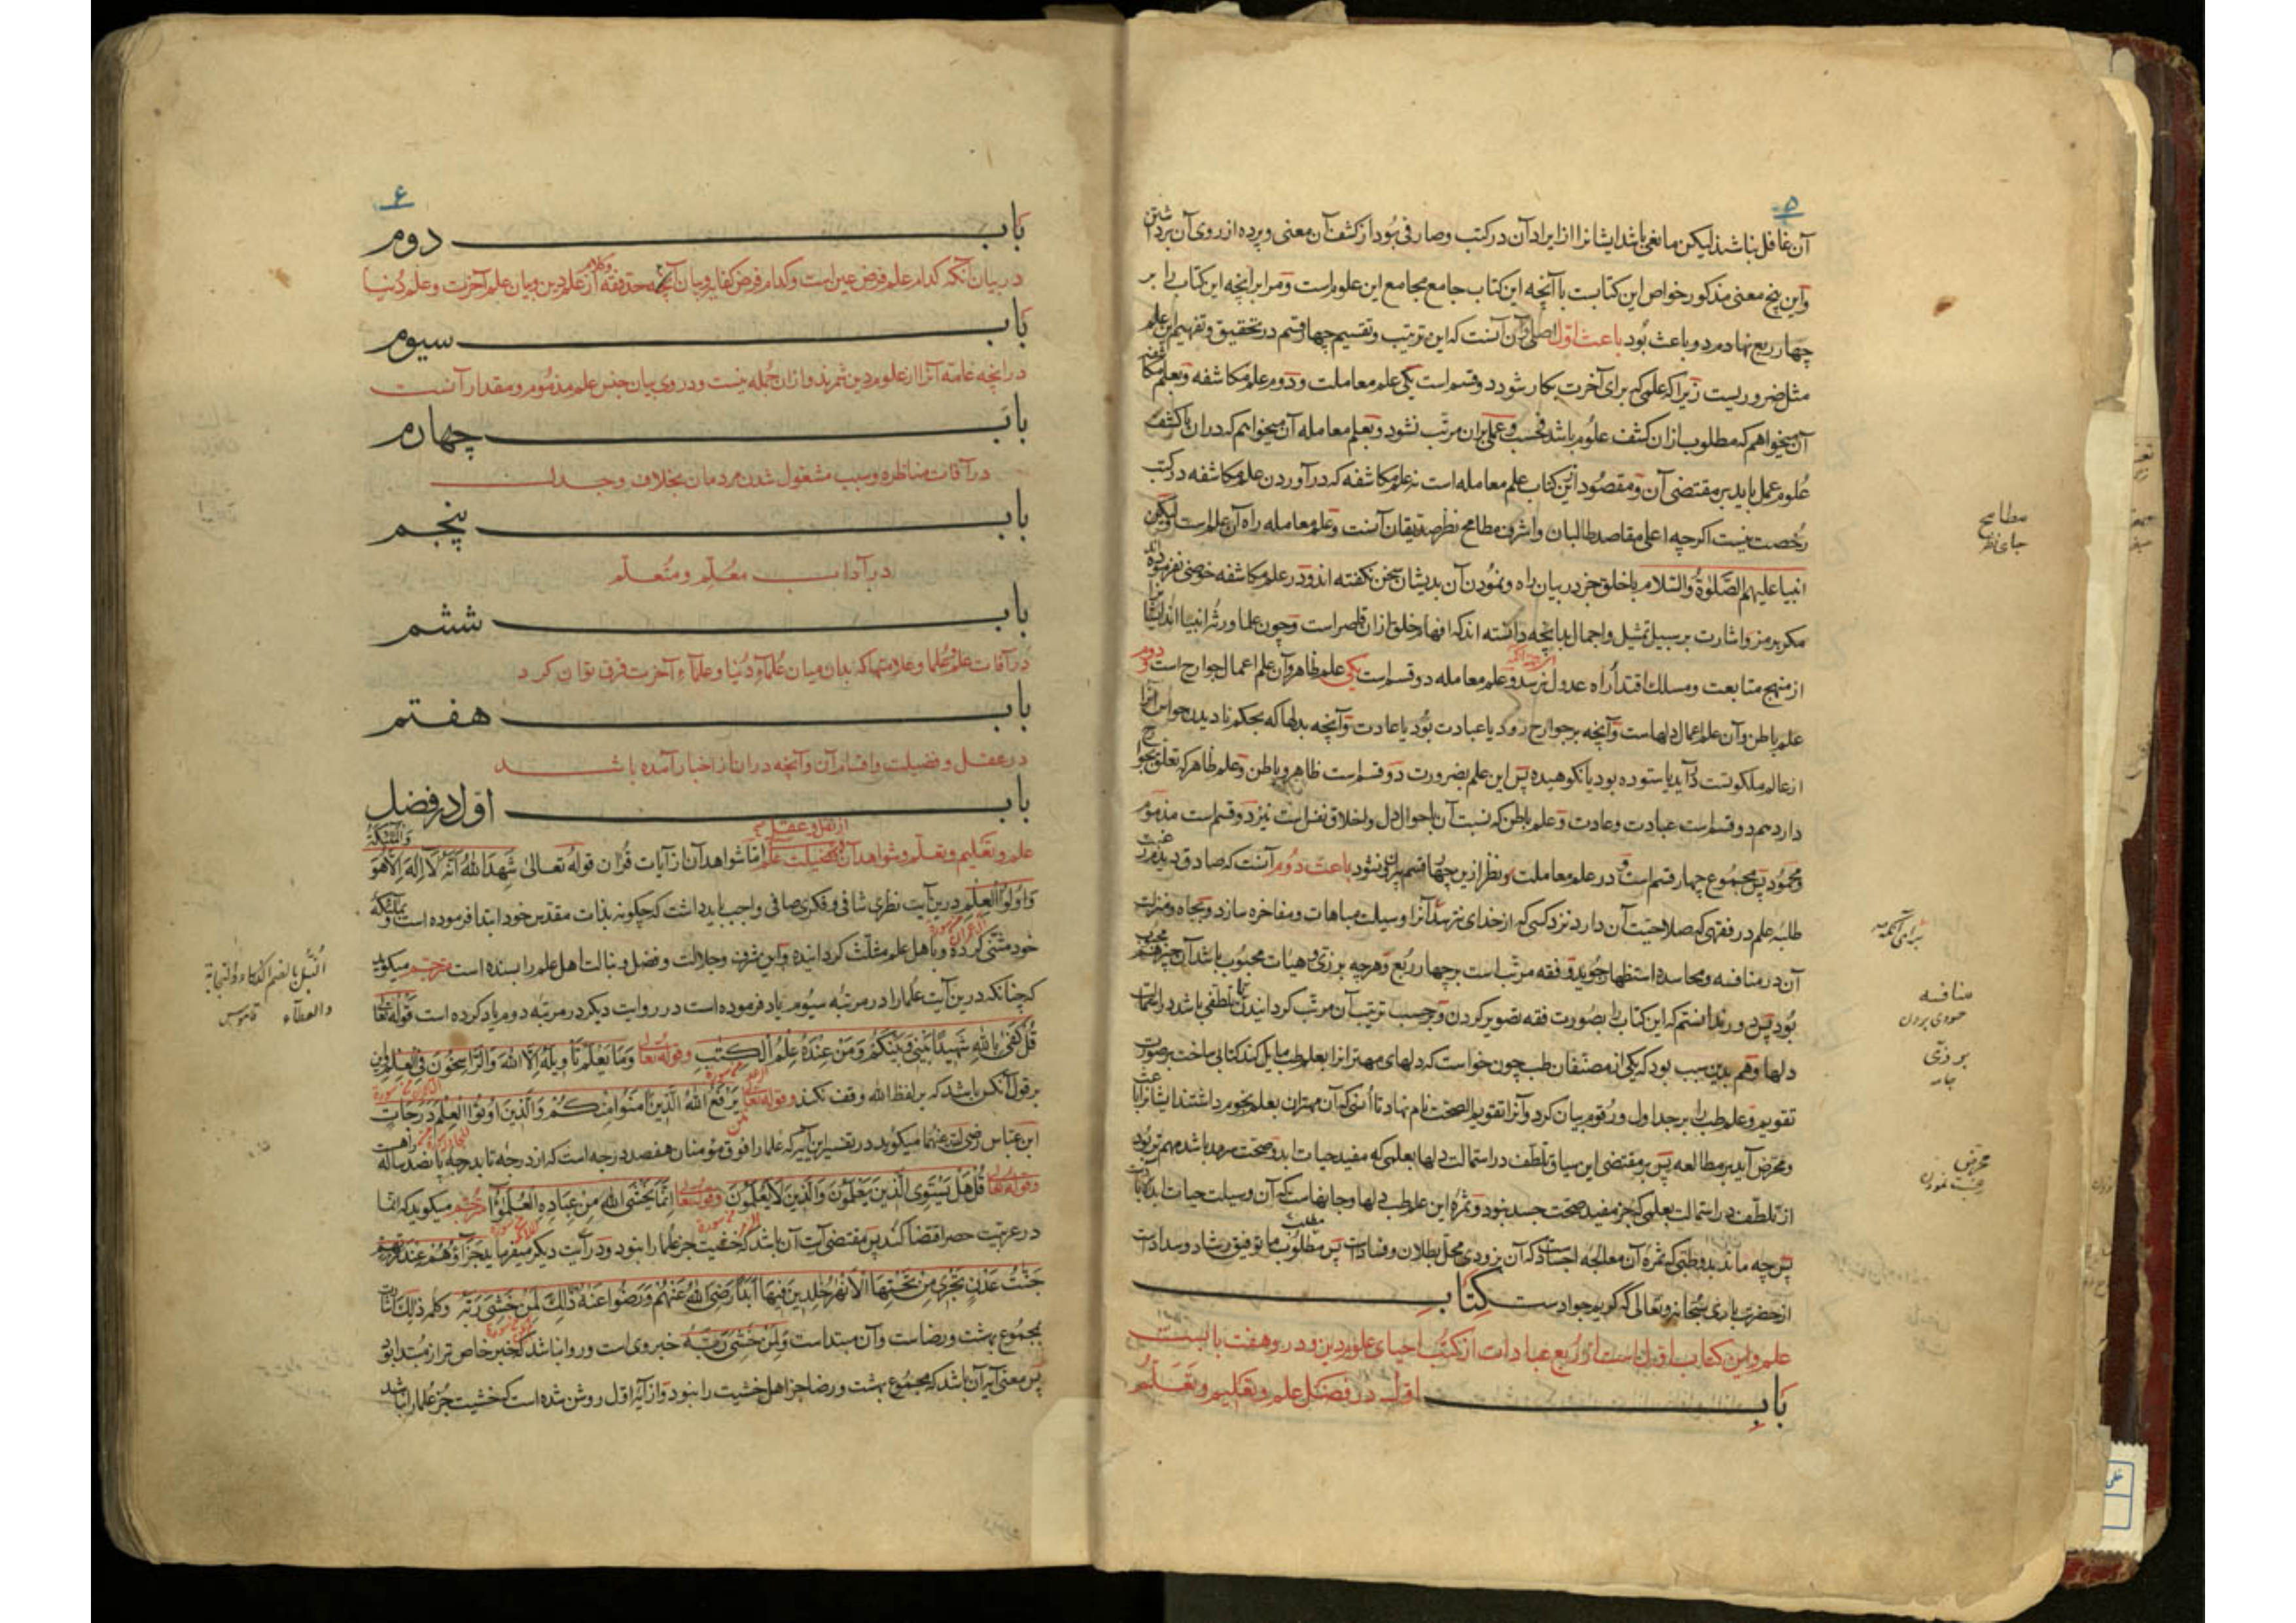 ۵
آن غافل نباشند لیکن مانعی باشد ایشانرا از ایراد آن در کتب و صارفی بود از کشف آن معنی و پرده از روی آن برداشتن
و این پنج معنی مذکور خواص این کتابست با آنچه این کتاب جامع مجامع این علوم است و مرا بر آنچه این کتاب را بر
چهار ربع نهادم دو باعث بود باعث اول اصلی و آن آنست که این ترتیب و تقسیم چهار قسم در تحقیق و تفهیم این علم
مثل ضروریست زیرا که علمی که برای آخرت بکار شود دو قسم است یکی علم معاملت و دوم علم مکاشفه و بعلم مکاشفه
آن میخواهم که مطلوب ازان کشف علوم باشد فحسب و عملی بران مرتب نشود و بعلم معامله آن میخواهم که دران با کشف
علوم عمل باید بر مقتضی آن و مقصود ازین کتاب علم معامله است نه علم مکاشفه که در آوردن علم مکاشفه در کتب
رخصت نیست اکرچه اعلی مقاصد طالبان و اشرف مطامح نظر صدیقان آنست و علم معامله راه آن علم است ولیکن
انبیا علیهم الصلوة والسلام با خلق جز در بیان راه و نمودن آن بدیشان سخن نکفته اند و در علم مکاشفه خوضی نفرموده اند
مکر برمز و اشارت بر سبیل تمثیل و اجمال بدانچه دانسته اند که افهام خلق ازان قاصر است و چون علما ورثه انبیا اند ایشانرا
از منهج متابعت و مسلک اقتدا راه عدول نرسد و علم معامله دو قسم است یکی علم ظاهر و آن علم اعمال جوارح است و دوم
علم باطن و آن علم اعمال دلهاست و آنچه بر جوارح رود یا عبادت بود یا عادت و آنچه بدلها که بحکم نادیدن حواس آنرا
از عالم ملکوتست در آید یا ستوده بود یا نکوهیده پس این علم بضرورت دو قسم است ظاهر و باطن و علم ظاهر که تعلق بجوارح
دارد هم دو قسم است عبادت و عادت و علم باطن که نسبت آن باحوال دل و اخلاق نفس است نیز دو قسم است مذموم
و محمود پس مجموع چهار قسم است و در علم معاملت نظر ازین چهار قسم بیرون نشود باعث دوم آنست که صادق دیدم رغبت
طلبه علم در فقهی که صلاحیت آن دارد نزد کسی که از خدای نترسد که آنرا وسیلت مباهات و مفاخره سازد و بجاه و منزلت
آن در منافسه و محاسده استظهار جوید و فقه مرتب است بر چهار ربع و هرچه بر زی و هیات محبوب باشد آن چیز هم محبوب
بود پس دور ندانستم که این کتاب را بصورت فقه تصویر کردن و بر حسب ترتیب آن مرتب کردانیدن تلطفی باشد در استمالت
دلها و هم بدین سبب بود که یکی از مصنفان طب چون خواست که دلهای مهترانرا بعلم طب مایل کند کتابی ساخت بر صورت
تقویم و علم طب را بر جداول و رقوم بیان کرد و آنرا تقویم الصحت نام نهاد تا انسی که آن مهتران بعلم نجوم داشتند ایشانرا باعث
و محرض آید بر مطالعه پس بر مقتضی این سیاق تلطف در استمالت دلها بعلمی که مفید حیات ابد و صحت سرمد باشد مهم تر بود
از تلطف در استمالت بعلمی که جز مفید صحت جسد نبود و ثمره این علم طب دلها و جانهاست که آن وسیلت حیات ابد است
پس چه ماند بدو طبی که ثمره آن معالجه اجساد است که آن بزودی محل بطلان و فساد است پس مطلوب ما توفیق رشاد و سداد است
از حضرت باری سبحانه و تعالی که کریم و جوادست کتاب
علم و این کتاب اول است از ربع عبادات از کتب احیای علوم دین و درو هفت بابست
باب اول در فضل علم و تعلیم و تعلم
مطامح
جای نظر
برای آنکه
منافسه
حودی بردن
بر وزی
جامه
محرض
رغبت نمودن
۶
باب دوم
در بیان آنکه کدام علم فرض عین است و کدام فرض کفایه و بیان آنچه حد فقه و کلام از علم دین و بیان علم آخرت و علم دنیا
باب سیوم
در آنچه عامه آنرا از علوم دین شمرند و ازان جمله نیست و در وی بیان جنس علم مذموم و مقدار آنست
باب چهارم
در آفات مناظره و سبب مشغول شدن مردمان بخلاف و جدل
باب پنجم
در آداب معلم و متعلم
باب ششم
در آفات علم و علما و علامتها که بدان میان علماء دنیا و علماء آخرت فرق توان کرد
باب هفتم
در عقل و فضیلت و اقسام آن و آنچه دران از اخبار آمده باشد
باب اول در فضل
علم و تعلیم و تعلم و شواهد آن از نقل و عقل فضیلت علم اما شواهد آن از آیات قران قوله تعالی شهد الله انه لا اله الا هو والملئکة
واولوا العلم درین آیت نظری شافی و فکری صافی واجب باید داشت که چکونه بذات مقدس خود ابتدا فرموده است و بملئکه
خود مثنی کرده و باهل علم مثلث کردانیده و این شرف و جلالت و فضل و نبالت اهل علم را بسنده است مترجم میکوید
که چنانکه درین آیت علما را در مرتبه سیوم یاد فرموده است در روایت دیکر در مرتبه دوم یاد کرده است قوله تعالی
قل کفی بالله شهیدا بینی وبینکم ومن عنده علم الکتب وقوله تعالی وما یعلم تأویله الا الله والراسخون فی العلم این
بر قول آنکس باشد که بر لفظ الله وقف نکند وقوله تعالی یرفع الله الذین آمنوا منکم والذین اوتوا العلم درجات
ابن عباس رضی الله عنهما میکوید در تفسیر این آیه که علما را فوق مؤمنان هفصد درجه است که از درجه تا بدرجه پانصد ساله راهست
وقوله تعالی قل هل یستوی الذین یعلمون والذین لا یعلمون وقوله تعالی انما یخشی الله من عباده العلموا مترجم میکوید که انما
در عربیت حصر اقتضا کند پس مقتضی آیت آن باشد که خشیت جز علما را نبود و در آیت دیکر میفرماید جزاؤهم عند ربهم
جنت عدن تجری من تحتها الانهر خلدین فیها ابدا رضی الله عنهم ورضوا عنه ذلک لمن خشی ربه وکلمه ذلک اشارت
بمجموع بهشت و رضاست و آن مبتداست و لمن خشی ربه خبر وی است و روا نباشد که خبر خاص تر از مبتدا بود
پس معنی آیه آن باشد که مجموع بهشت و رضا جز اهل خشیت را نبود و از آیه اول روشن شده است که خشیت جز علما را نباشد
النبل بالضم الذکاء والنجابة
والعطاء قاموس